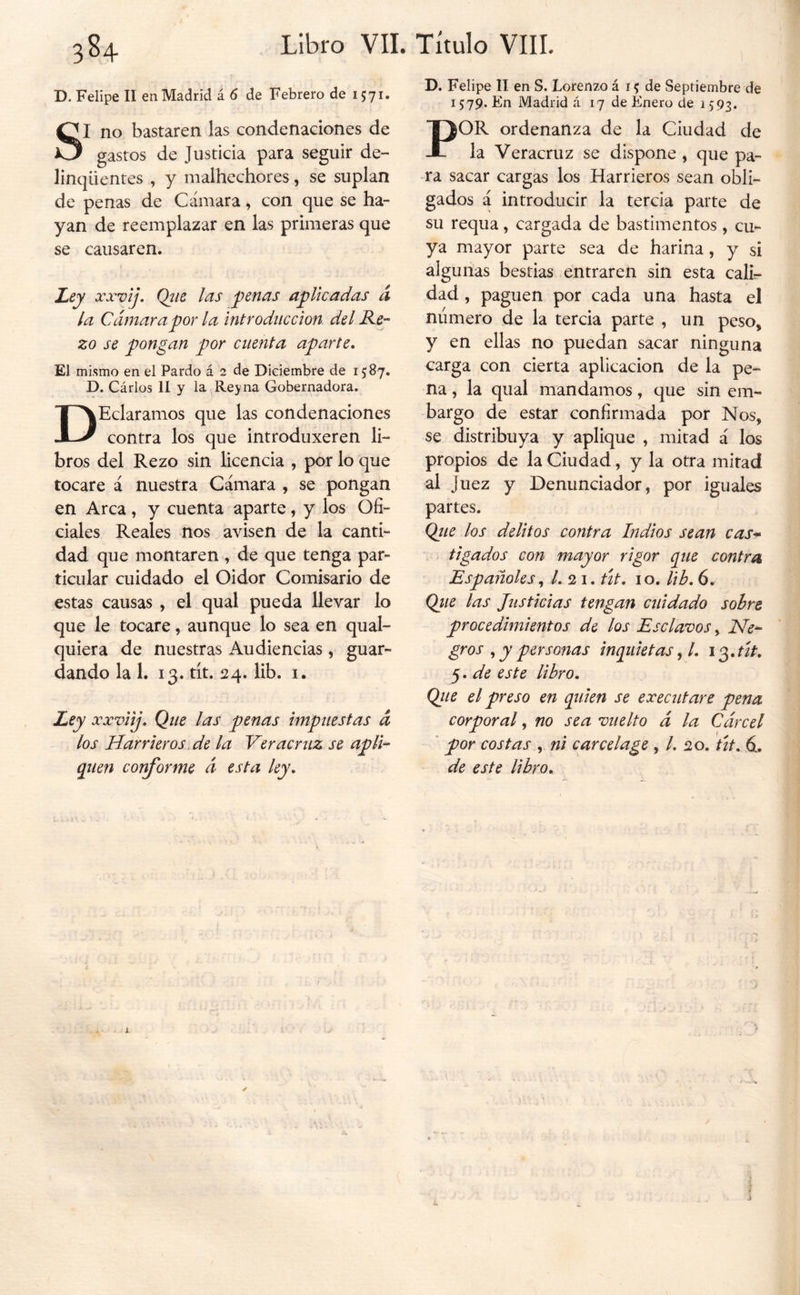 384 Libro VII. Título VIII.
D. Felipe II en Madrid á 6 de Febrero de 1571.
SI no bastaren las condenaciones de
gastos de Justicia para seguir de-
linqüentes , y malhechores, se suplan
de penas de Cámara, con que se ha-
yan de reemplazar en las primeras que
se causaren.
Ley xxvij. Que las penas aplicadas á
la Cámara por la introduccion del Re-
zo se pongan por cuenta aparte.
El mismo en el Pardo á 2 de Diciembre de 1587.
D. Cárlos II y la Reyna Gobernadora.
DEclaramos que las condenaciones
contra los que introduxeren li-
bros del Rezo sin licencia , por lo que
tocare á nuestra Cámara , se pongan
en Arca, y cuenta aparte, y los Ofi-
ciales Reales nos avisen de la canti-
dad que montaren , de que tenga par-
ticular cuidado el Oidor Comisario de
estas causas , el qual pueda llevar lo
que le tocare, aunque lo sea en qual-
quiera de nuestras Audiencias, guar-
dando la l. 13. tít. 24. lib. 1.
Ley xxviij. Que las penas impuestas á
los Harrieros de la Veracruz se apli-
quen conforme á esta ley.
D. Felipe II en S. Lorenzo á 15 de Septiembre de
1579. En Madrid á 17 de Enero de 1593.
POR ordenanza de la Ciudad de
la Veracruz se dispone , que pa-
ra sacar cargas los Harrieros sean obli-
gados á introducir la tercia parte de
su requa, cargada de bastimentos , cu-
ya mayor parte sea de harina, y si
algunas bestias entraren sin esta cali-
dad , paguen por cada una hasta el
número de la tercia parte , un peso,
y en ellas no puedan sacar ninguna
carga con cierta aplicacion de la pe-
na, la qual mandamos, que sin em-
bargo de estar confirmada por Nos,
se distribuya y aplique , mitad á los
propios de la Ciudad, y la otra mitad
al Juez y Denunciador, por iguales
partes.
Que los delitos contra Indios sean cas-
tigados con mayor rigor que contra
Españoles, l. 21. tít. 10. lib. 6.
Que las Justicias tengan cuidado sobre
procedimientos de los Esclavos, Ne-
gros , y personas inquietas, l. 13. tít.
5. de este libro.
Que el preso en quien se executare pena
corporal, no sea vuelto á la Cárcel
por costas , ni carcelage , l. 20. tít. 6.
de este libro.